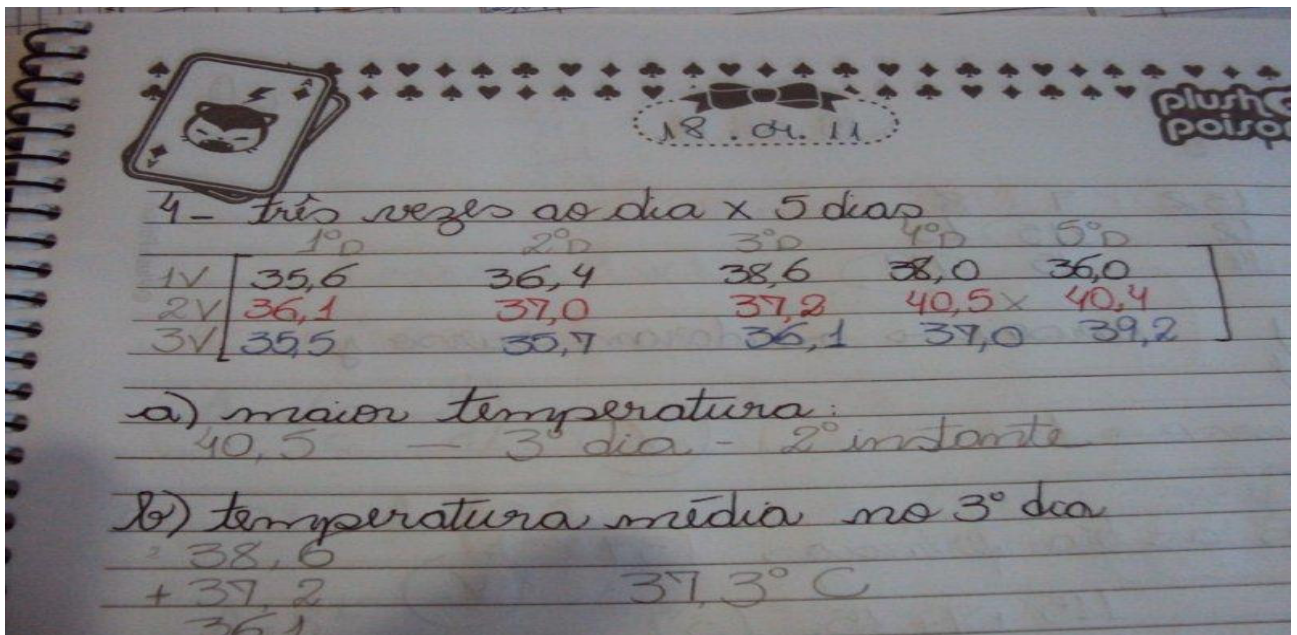 plush
18.04.11
4- três vezes ao dia x 5 dias
1ºD 2ºD 3ºD 4ºD 5ºD
1V 35,6 36,4 38,6 38,0 36,0
2V 36,1 37,0 37,2 40,5 x 40,4
3V 35,5 35,7 36,1 37,0 39,2
a) maior temperatura:
40,5 — 3º dia - 2º instante
b) temperatura média no 3º dia
38,6
+ 37,2 37,3º C
36,1